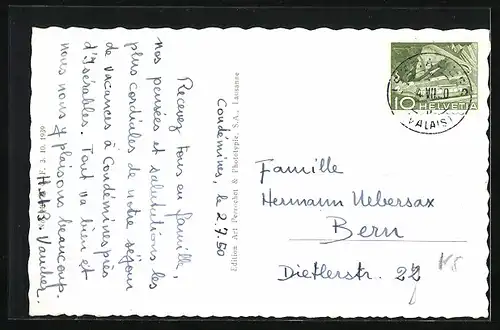 Condémines, le 2.7.50
Recevez tous en famille,
nos pensées et salutations les
plus cordiales de notre séjour
de vacances à Condémines près
d'Isérables. Tout va bien et
nous nous y plaisons beaucoup.
H. et B. Vaucher.
Edition Art Perrochet & Phototypie, S.A., Lausanne
10 HELVETIA
VALAIS
Famille
Hermann Uebersax
Bern
Dietlerstr. 22